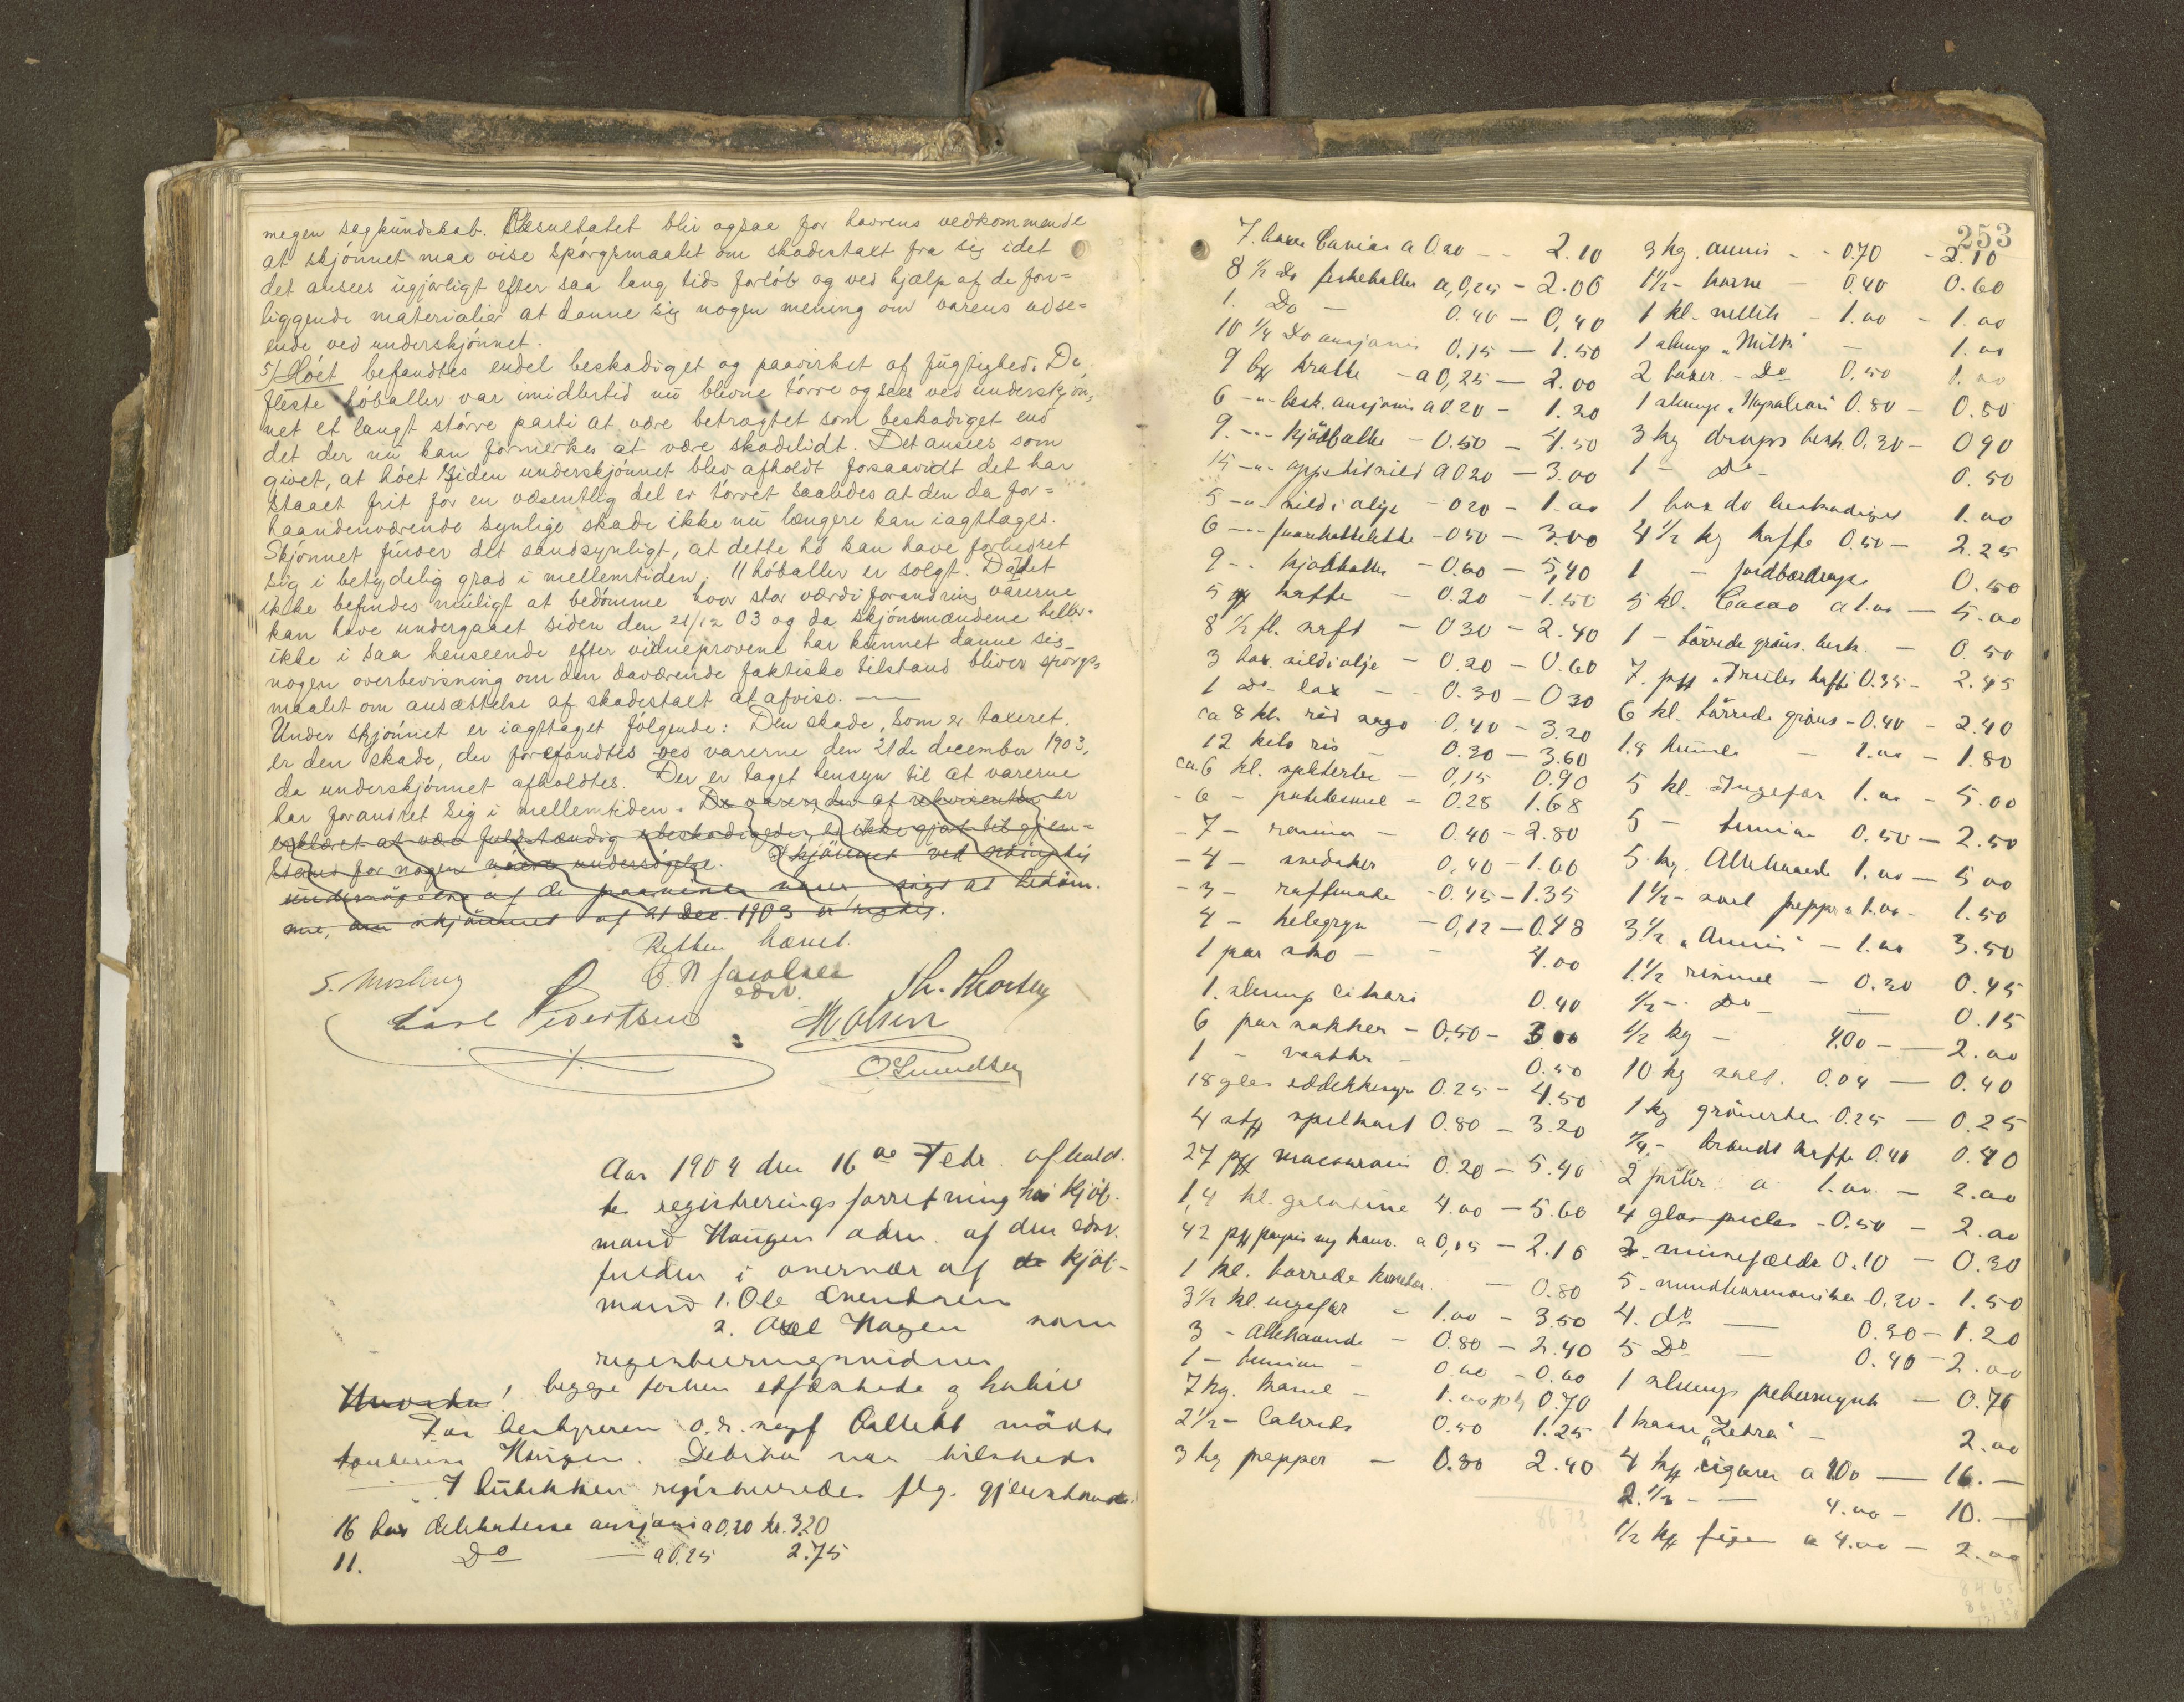 megen sagkundskab. Resultatet blir ogsaa for havrens vedkommende
at skjønnet maa vise spørgsmaalet om skadestakt fra sig idet
det ansees ugjørligt efter saa lang tids forløb og ved hjælp af de for=
liggende materialier at danne sig nogen mening om varens udse=
ende ved underskjønnet.
5/ Høet befandtes endel beskadiget og paavirket af fugtighed. De
fleste høballer var imidlertid nu blevne tørre og sees ved underskjøn,
net et langt større parti at være betragtet som beskadiget end
det der nu kan formerkes at være skadelidt. Det ansees som
givet, at høet siden underskjønnet blev afholdt forsaavidt det har
staaet frit for en væsentlig del er tørret saaledes at den da for=
haandenværende synlige skade ikke nu længere kan iagttages.
Skjønnet finder det sandsynligt, at dette hø kan have forbedret
sig i betydelig grad i mellemtiden. 11 høballer er solgt. Da det
ikke befindes muligt at bedømme hvor stor værdiforandring varerne
kan have undergaaet siden den 21/12 03 og da skjønsmændene heller
ikke i saa henseende efter vidneprovene har kunnet danne sig
nogen overbevisning om den daværende faktiske tilstand bliver spørgs
maalet om ansættelse af skadestakt at afvise. —
Under skjønnet er iagttaget følgende: Den skade, som er taxeret.
er den skade, der forefandtes ved varerne den 21de december 1903,
da underskjønnet afholdtes. Der er taget hensyn til at varerne
har forandret sig i mellemtiden. De varer, der af rekvirenten er
erklæret at være fuldstændig ubeskadigede, er ikke gjort til gjen=
stand for nogen nærmere undersøgelse. Skjønnet ved
undersøgelse af de paaviste varer søgt at bedøm.
me, om skjønnet af 21 Dec. 1903 er rigtig.
Retten hævet.
C. N. Jacobsen
edsv.
S. Mosling
Th. Thorsen
Carl Sivertsen
H. Olsen
O. Smedsen
Aar 1904 den 16de Febr. afhold.
tes registreringsforretning hos kjøb.
mand Haugen adm. af den edsv.
fuldm i overvær af de kjøb-
mand 1. Ole Svendsen
2. Axel Hagen som
registreringsvidner
begge forhen edfæstede
For bestyreren o.r. sagf mødte
Haugen. Debitor var tilstede
I butikken registreredes flg. gjenstande
16 box delikatesse ansjovis a 0.20 kr. 3.20
11. Do — a 0.25 2.75
253
7. boxer Caviar a 0.30 — 2.10
8 1/2 Do fiskeboller a 0,25 — 2.00
1. Do — 0.40 — 0,40
10 1/4 Do ansjovis 0,15 — 1.50
9 bx krabbe — a 0,25 — 2.00
6 -"- besk. ansjovis a 0.20 — 1.20
9. -"- kjødbolle — 0.50 — 4.50
15 -"- appetitsild a 0.20 — 3.00
5 -"- sild i olje — 0 20 — 1.00
6 -"- faarekottelette — 0 50 — 3.00
9 - kjødboller — 0.60 — 5,40
5 pk kaffe — 0.30 — 1.50
8 1/2 fl. saft — 0 30 — 2.40
3 box. sild i olje — 0.20 — 0.60
1 Do lax — 0.30 — 0 30
ca 8 kl. rød sago 0,40 — 3.20
12 kilo ris — 0.30 — 3.60
ca. 6 kl. splterter — 0,15 0.90
- 6 - potetesmel — 0.28 1.68
- 7 - rosiner — 0.40 — 2.80
- 4 - svedsker 0,40 — 1.60
- 3 - raffinade — 0.45 — 1.35
4 - helegryn — 0,12 — 0.48
1 par sko — 4.00
1. slump cikori 0.40
6 par sokker — 0,50 — 3.00
1 - vaatter — 0.50
18 glas eddikkesyre 0.25 — 4.50
4 stk spilkort 0.80 — 3.20
27 pk maccaroni 0.20 — 5.40
1,4 kl. gelatine 4.00 — 5.60
42 pk papir og konv. a 0,05 — 2.10
1 kl. tørrede kirsebær. — 0.80
3 1/2 kl. ingefær — 1.00 — 3.50
3 - Allehaande — 0.80 — 2.40
1 - timian — 0.60 — 0.60
7 hg. kanel — 1.00 0.70
2 1/2 - Lakrids 0.50 1.25
3 kg pepper — 0.80 2.40
86 73
3 kg. annis — 0.70 — 2.10
1 1/2 - karve — 0.40 0.60
1 kl. nellik — 1.00 — 1.00
1 slump "Milk" — 1.00
2 boxer. — Do 0,50 1.00
1 slump "Napoleon" 0.80 — 0.80
3 kg drops besk. 0,30 — 0 90
1 - Do — 0.50
1 box do beskadiget 1.00
4 1/2 kg kaffe 0.50 — 2.25
1 - jordbærdrops 0.50
5 kl. Cacao a 1.00 — 5.00
1 - tørrede grøns. besk. — 0.50
7. pk kaffe 0.35 — 2.45
6 kl. tørrede grøns — 0.40 — 2.40
1.8 humle — 1.00 — 1.80
5 kl. Ingefær 1.00 — 5.00
5 - timian 0.50 — 2.50
5. kg. Allehaande 1.00 — 5 00
1 1/2 - sort pepper a 1.00 — 1.50
3 1/2 "Annis" — 1.00 3.50
1 1/2 rismel — 0.30 0.45
1/2 - Do — 0.15
1/2 kg — 4.00 — 2.00
10 kg salt. 0.04 — 0.40
1 kg grønerter 0.25 — 0.25
1/4 - brændt kaffe 0.40 0.40
2 a 1.00 — 2.00
4 glas picles — 0.50 — 2.00
3. musefælde 0.10 — 0.30
5. mundharmonika 0,30 — 1.50
4. do — 0.30 — 1.20
5 Do — 0.40 — 2.00
1 slump pebermynt — 0.70
1 kasse "Zebra" — 2.00
4 kg cigarer a 400 — 16. —
2 1/2 - — 4.00 — 10. —
1/2 kg figen a 4.00 — 2.00
84 65
86 73